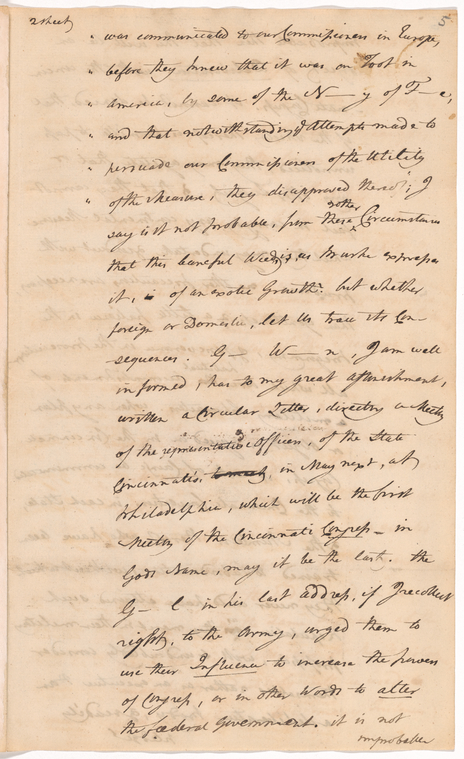 2 sheet
5
" was communicated to our Commissioners in Europe,
" before they knew that it was on Foot in
" America, by some of the N—y of F—e,
" and that notwithstanding ye Attempts made to
" persuade our Commissioners of the Utility
" of the Measure, they disapproved thereof"; I
say is it not probable, from these other Circumstances
that this baneful Weed, as Burke expresses
it, is of an exotic Growth? but whether
foreign or Domestic, let us trace its Con-
sequences. G— W—n, I am well
informed, has to my great astonishment,
written a Circular Letter, directing a Meeting
of the representative Officers, of the State
Cincinnati's, to meet, in May next, at
Philadelphia, which will be the first
Meeting of the Cincinnati Congress — in
Gods Name, may it be the last. the
G— l in his last address, if I recollect
right, to the Army, urged them to
use their Influence to increase the powers
of Congress, or in other Words to alter
the fœderal Government. it is not
improbable